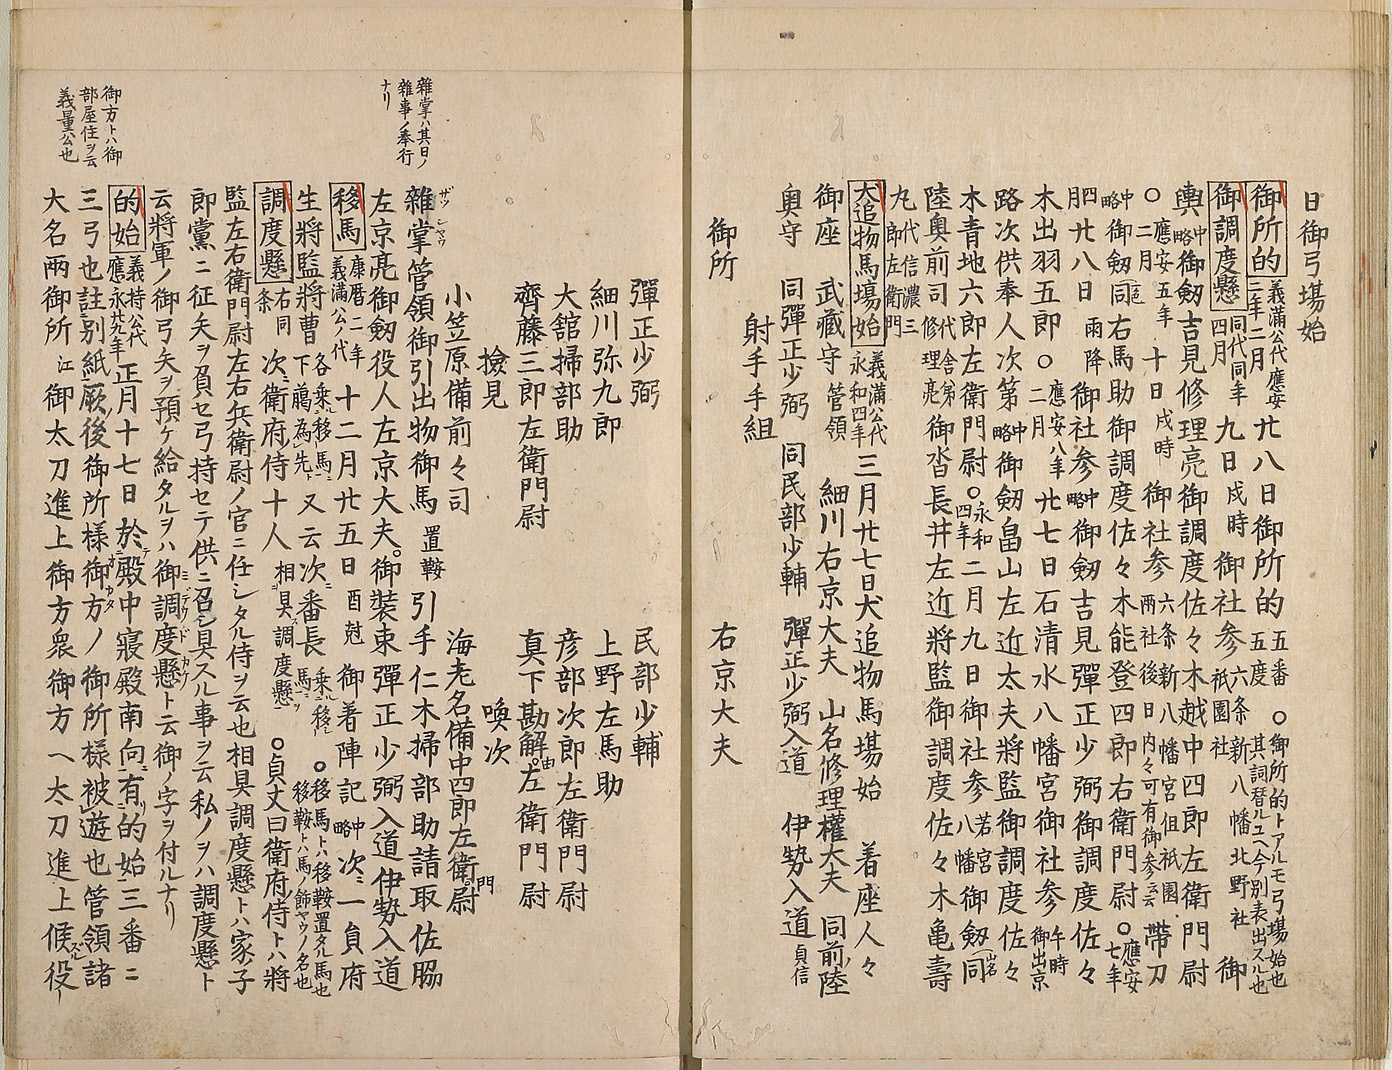 日御弓場始
御所的 義満公代應安二年二月 廿八日御所的 五番五度 ○御所的トアルモ弓場始也其詞替ルユヘ今別表出スル也
御調度懸 同代同年四月 九日 戌時 御社参 六条新八幡北野社祇園社 御
輿 中略 御劔吉見修理亮御調度佐々木越中四郎左衛門尉
○應安五年二月 十日 戌時 御社参 六条新八幡宮但祇園両社後日内々可有御参云云 帯刀
中略 御劔 同 右馬助御調度佐々木能登四郎右衛門尉○應安七年
四月廿八日 雨降 御社参 中略 御劔吉見彈正少弼御調度佐々
木出羽五郎○應安八年二月 廿七日石清水八幡宮御社参 午時御出京
路次供奉人次第 中略 御劔畠山左近太夫將監御調度佐々
木青地六郎左衛門尉○永和四年二月九日御社参 若宮八幡 御劔 同
陸奥前司 代舎弟修理亮 御沓長井左近將監御調度佐々木亀壽
九 代信濃三郎左衛門
犬追物馬場始 義満公代永和四年 三月廿七日犬追物馬場始 着座人々
御座 武藏守 管領 細川右京大夫 山名修理權大夫 同前陸
奥守 同彈正少弼 同民部少輔 彈正少弼入道 伊勢入道 貞信
射手手組
御所 右京大夫
彈正少弼 民部少輔
細川弥九郎 上野左馬助
大舘掃部助 彦部次郎左衛門尉
齊藤三郎左衛門尉 真下勘解由左衛門尉
撿見 喚次
小笠原備前々司 海老名備中四郎左衛門尉
雜掌ハ其日ノ雜事ノ奉行ナリ
雜掌管領御引出物御馬 置鞍 引手仁木掃部助請取佐脇
左京亮御劔役人左京大夫○御装束彈正少弼入道伊勢入道
移馬 康暦二年義満公ノ代 十二月廿五日 酉尅 御着陣記 中略 次ニ一員府
生將監將曹 各乗移馬下﨟為先 又云次ニ番長 乗移馬 ○移馬トハ移鞍置タル馬也移鞍トハ馬ノ飾ヤウノ名也
調度懸 右同条 次ニ衛府侍十人 相具調度懸 ○貞丈曰衛府侍トハ將
監左右衛門尉左右兵衛尉ノ官ニ任シタル侍ヲ云也相具調度懸トハ家ノ子
郎黨ニ征矢ヲ負セ弓持セテ供ニ召シ具スル事ヲ云私ノヲハ調度懸ト
云將軍ノ御弓矢ヲ預ケ給タルヲハ御調度懸ト云御ノ字ヲ付ルナリ
的始 義持公代應永廿九年 正月十七日於殿中寢殿南向有的始三番ニ
御方トハ御部屋住ヲ云義量公也
三弓也註別紙厥後御所様御方ノ御所様被遊也管領諸
大名両御所 江 御太刀進上御方衆御方ヘ太刀進上候役